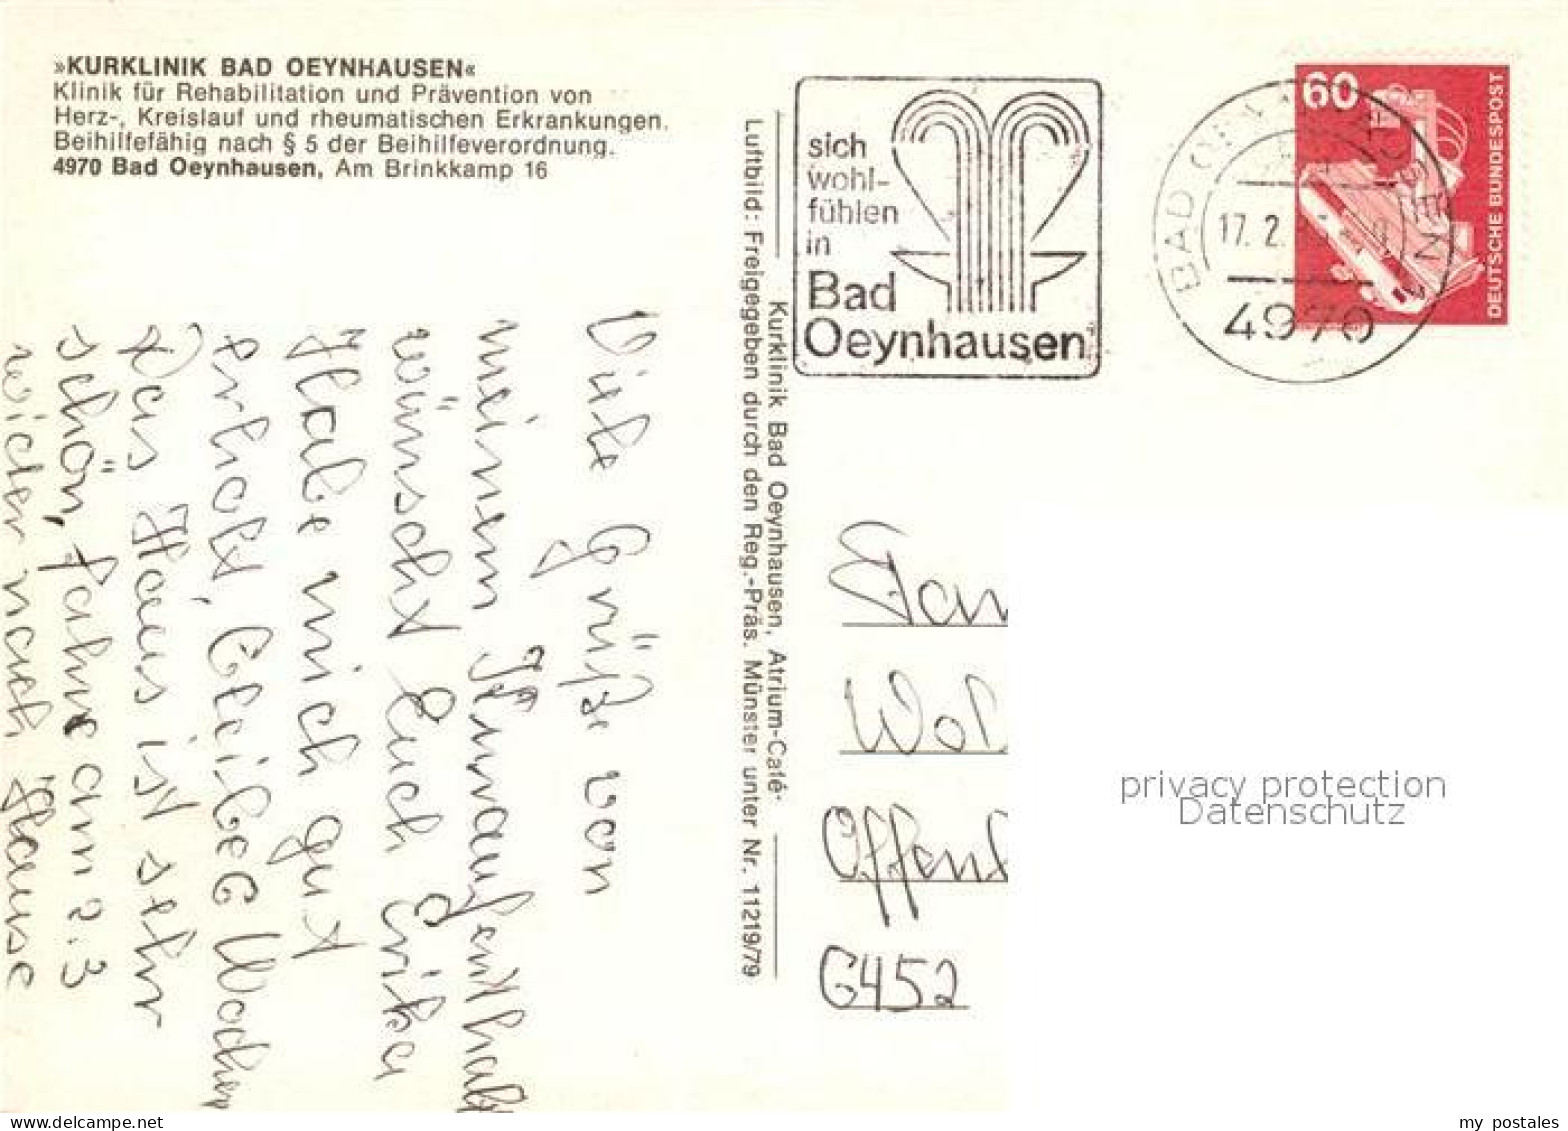 »KURKLINIK BAD OEYNHAUSEN«
Klinik für Rehabilitation und Prävention von
Herz-, Kreislauf und rheumatischen Erkrankungen.
Beihilfefähig nach § 5 der Beihilfeverordnung.
4970 Bad Oeynhausen, Am Brinkkamp 16
Viele Grüße von
meinem
wünscht Euch Erika
Habe mich gut
erholt, Wochen
Das Haus ist sehr
schön, fahre am 2.3
wieder nach Hause
Kurklinik Bad Oeynhausen, Atrium-Café
Luftbild: Freigegeben durch den Reg.-Präs. Münster unter Nr. 11219/79
sich
wohl-
fühlen
in
Bad
Oeynhausen
BAD OEYNHAUSEN
17.2.
4970
60
DEUTSCHE BUNDESPOST
Offenb
6452
privacy protection
Datenschutz
www.delcampe.net
my_postales